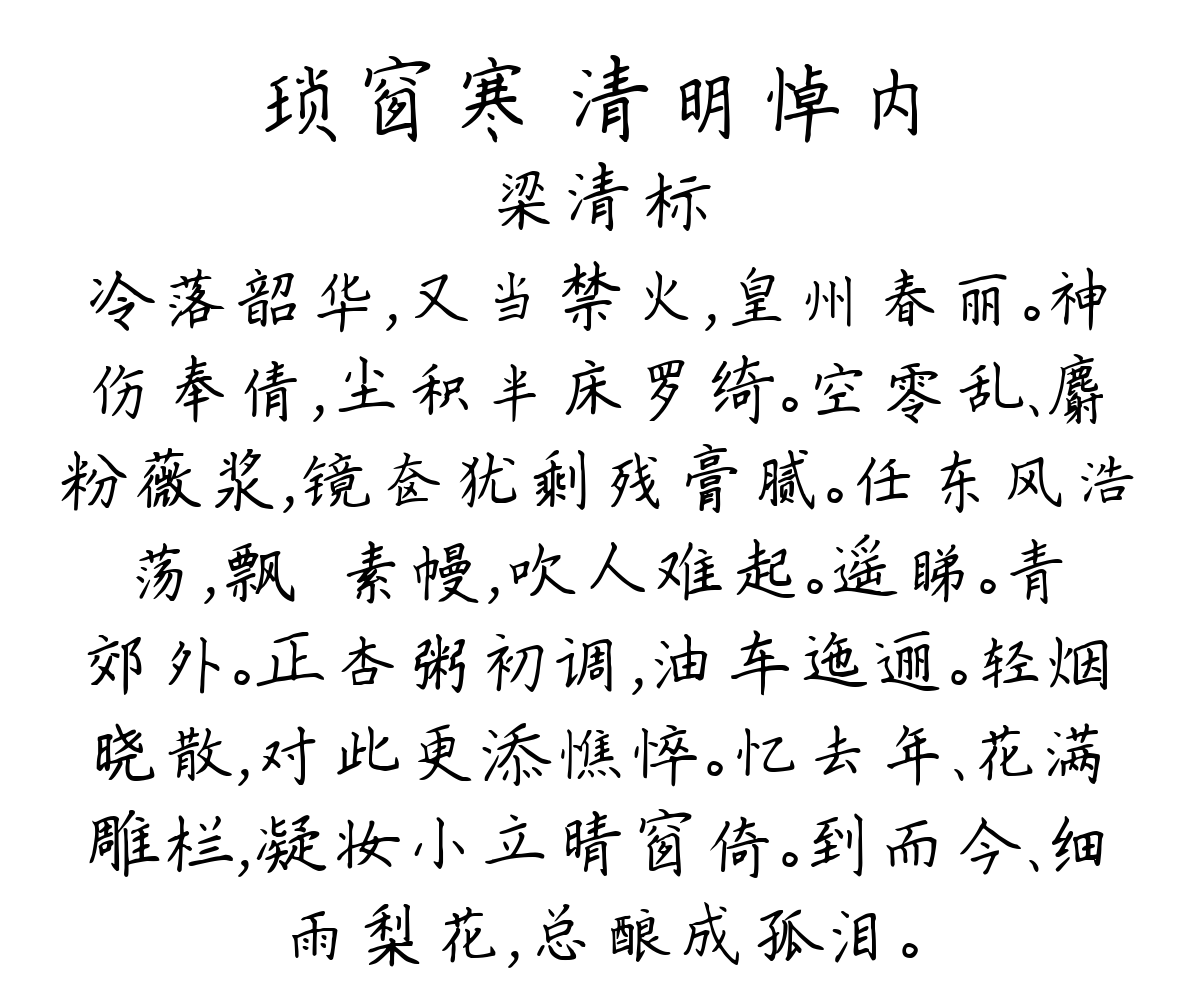 琐窗寒 清明悼内
梁清标
冷落韶华,又当禁火,皇州春丽。神
伤奉倩,尘积半床罗绮。空零乱、麝
粉薇浆,镜奁犹剩残膏腻。任东风浩
荡,飘 素幔,吹人难起。遥睇。青
郊外。正杏粥初调,油车迤逦。轻烟
晓散,对此更添憔悴。忆去年、花满
雕栏,凝妆小立晴窗倚。到而今、细
雨梨花,总酿成孤泪。